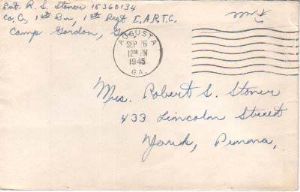 Pvt. R. S. Stoner 15360134
Co. C, 1st Bn, 1st Regt I.A.R.T.C.
Camp Gordon, Ga.
AUGUSTA
SEP 15
12 M
1945
GA.
Mrs. Robert S. Stoner
433 Lincoln Street
York, Penna.